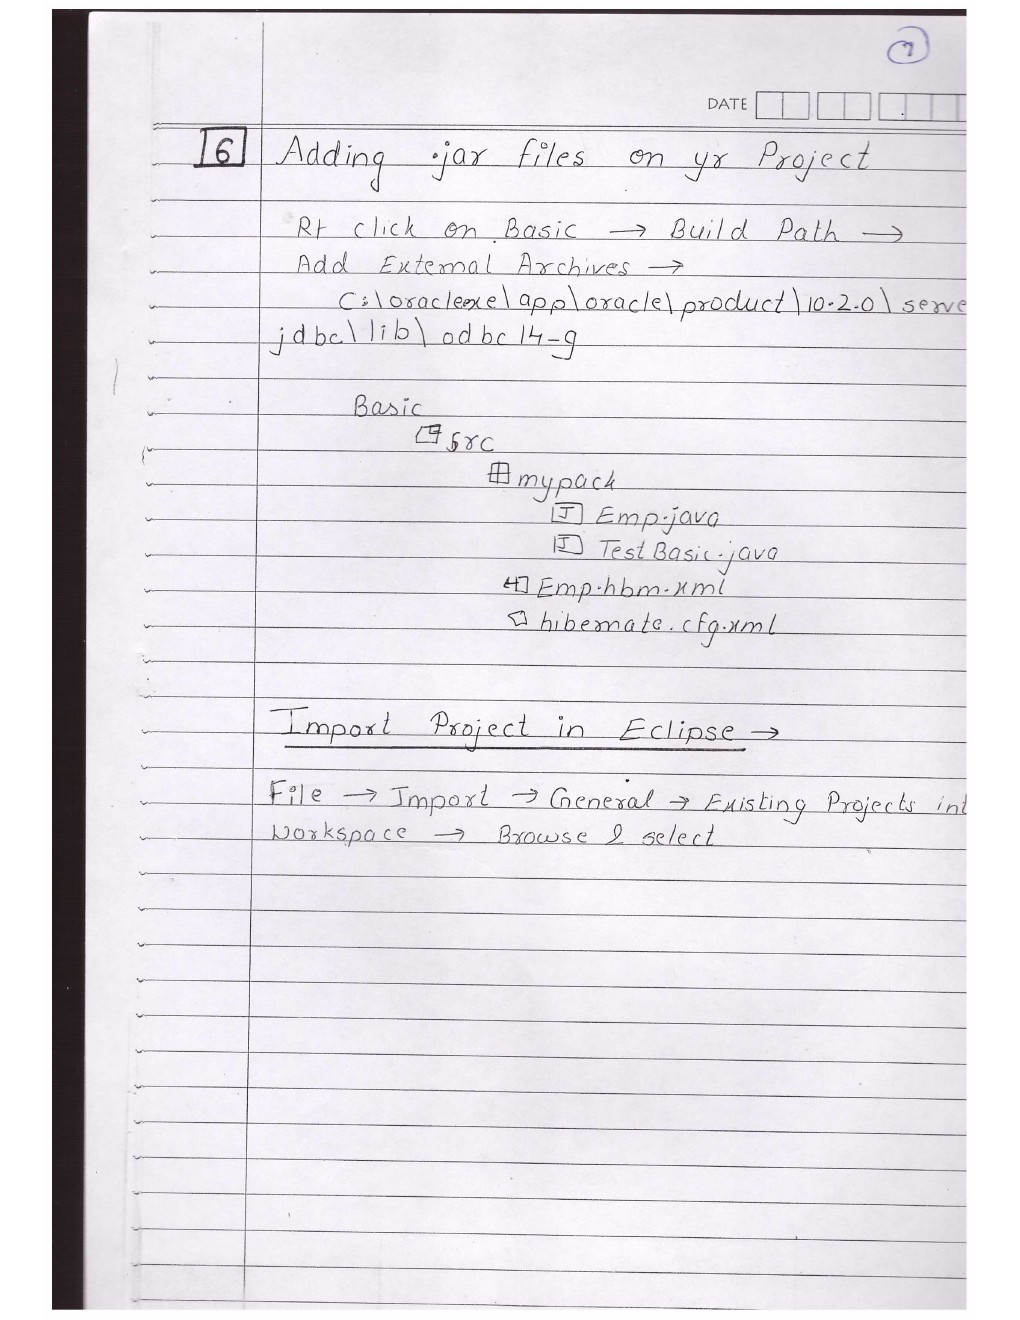 7
DATE
6 Adding .jar files on yr Project
Rt click on Basic → Build Path →
Add External Archives →
C:\oraclexe\app\oracle\product\10.2.0\serve
jdbc\lib\odbc14-g
Basic
src
mypack
J Emp.java
J TestBasic.java
Emp.hbm.xml
hibernate.cfg.xml
Import Project in Eclipse →
File → Import → General → Existing Projects int
Workspace → Browse & select